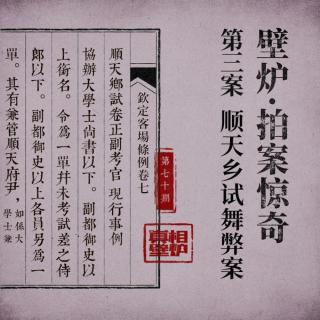 壁炉·拍案惊奇
第三案 顺天乡试舞弊案
第七十期
真相
壁炉
欽定客場條例卷七
順天鄉試卷正副考官 現行事例
協辦大學士尚書以下。副都御史以
上銜名。令為一單幷未考試差之侍
郎以下。副都御史以上各員另為一
單。其有兼管順天府尹，如係大
學士兼